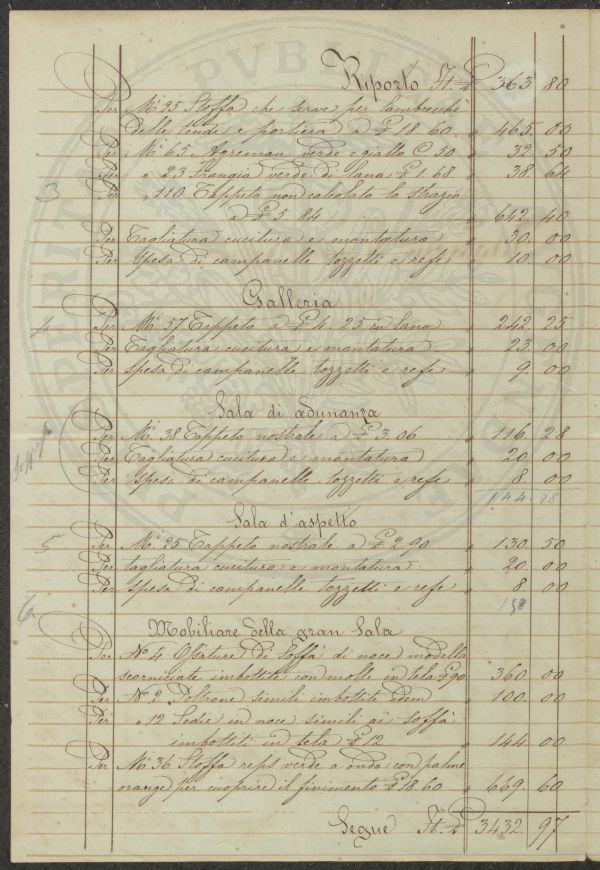 Riporto It. £ 363 80
Per Mi 25 Stoffa che serve per lambrechè
delle tende e portiera a £ 18.60 " 465. 00
Per Mi 65 Agreman verde e giallo C 50 " 32. 50
Per " 23 Frangia verde di lana £ 1.68 " 38. 64
3
Per " 110 Tappeto non calcolato lo strazio
a £ 5.84 " 642. 40
Per Tagliatura cucitura e montatura " 30. 00
Per Spesa di campanelle tozzetti e refe " 10. 00
Galleria
4 Per Mi 57 Tappeto a £ 4.25 in lana " 242. 25
Per Tagliatura cucitura e montatura " 23. 00
Per Spesa di campanelle tozzetti e refe " 9. 00
Sala di adunanza
Per Mi 38 Tappeto nostrale a £ 3.06 " 116. 28
Per Tagliatura cucitura e montatura " 20. 00
Per Spesa di campanelle tozzetti e refe " 8. 00
144 28
Sala d'aspetto
5 Per Mi 25 Tappeto nostrale a £ 2.90 " 130. 50
Per tagliatura cucitura e montatura " 20. 00
Per Spesa di campanelle tozzetti e refe " 8 00
158
6.
Mobiliare della gran Sala
Per No 4 Ossature di Soffà di noce modello
scorniciate imbottite con molle in tela £ 90 360. 00
Per No 2 Poltrone simili imbottite idem " 100. 00
Per " 12 Sedie in noce simili ai soffà
imbottiti in tela £ 12 " 144. 00
Per Mi 36 Stoffa reps verde a onde con palme
orange per cuoprire il finimento £ 18.60 " 669. 60
Segue It. £ 3432. 97